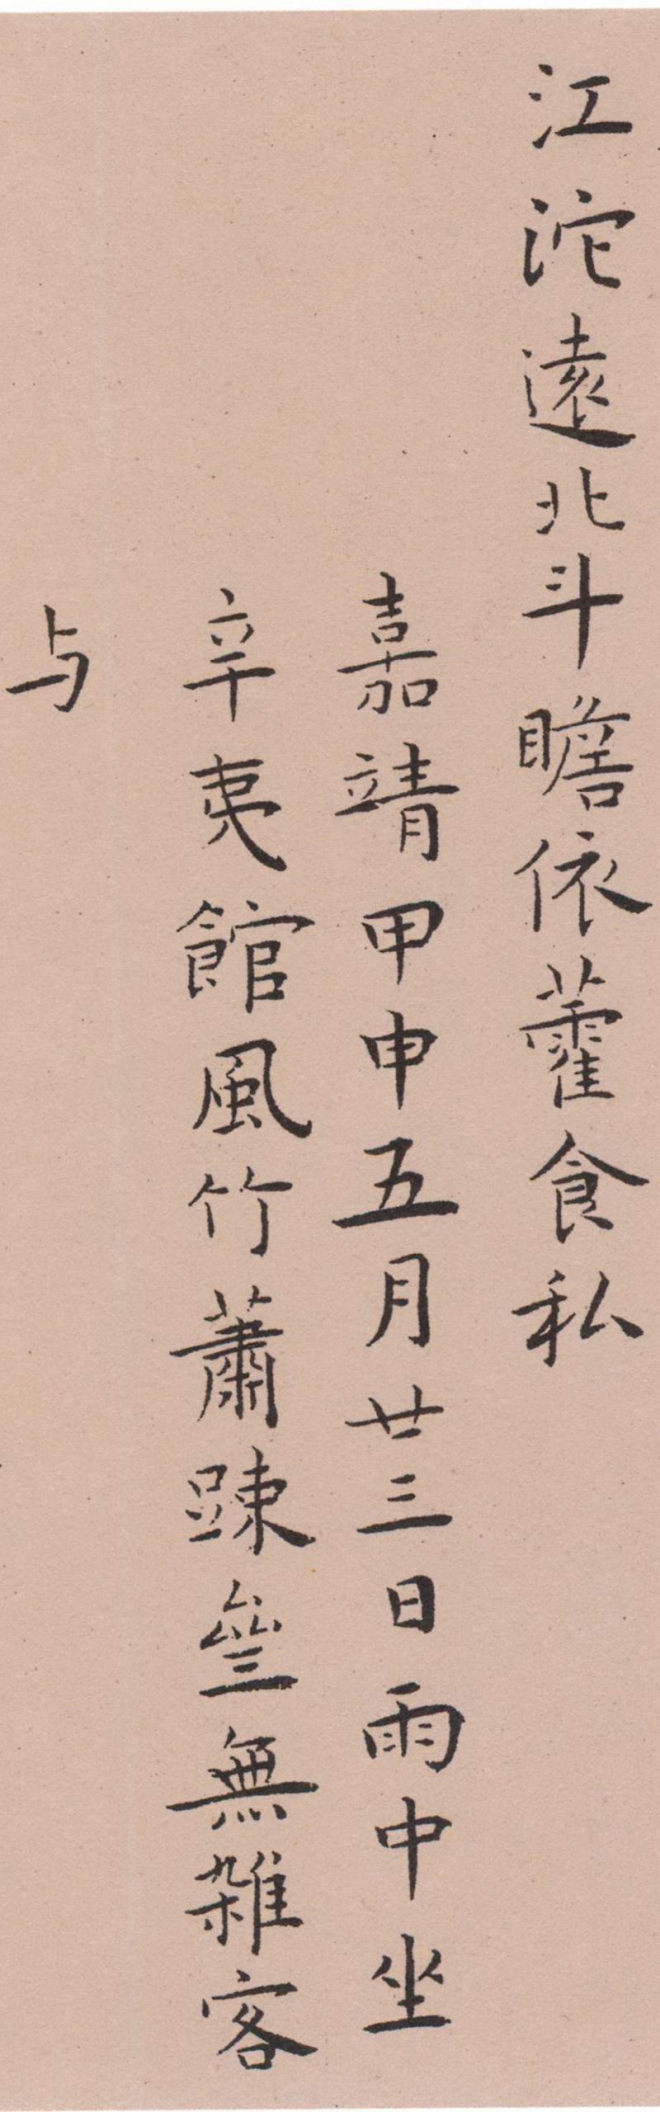 江沱遠北斗瞻依藿食私
嘉靖甲申五月廿三日雨中坐
辛夷館風竹蕭踈並無雜客
与